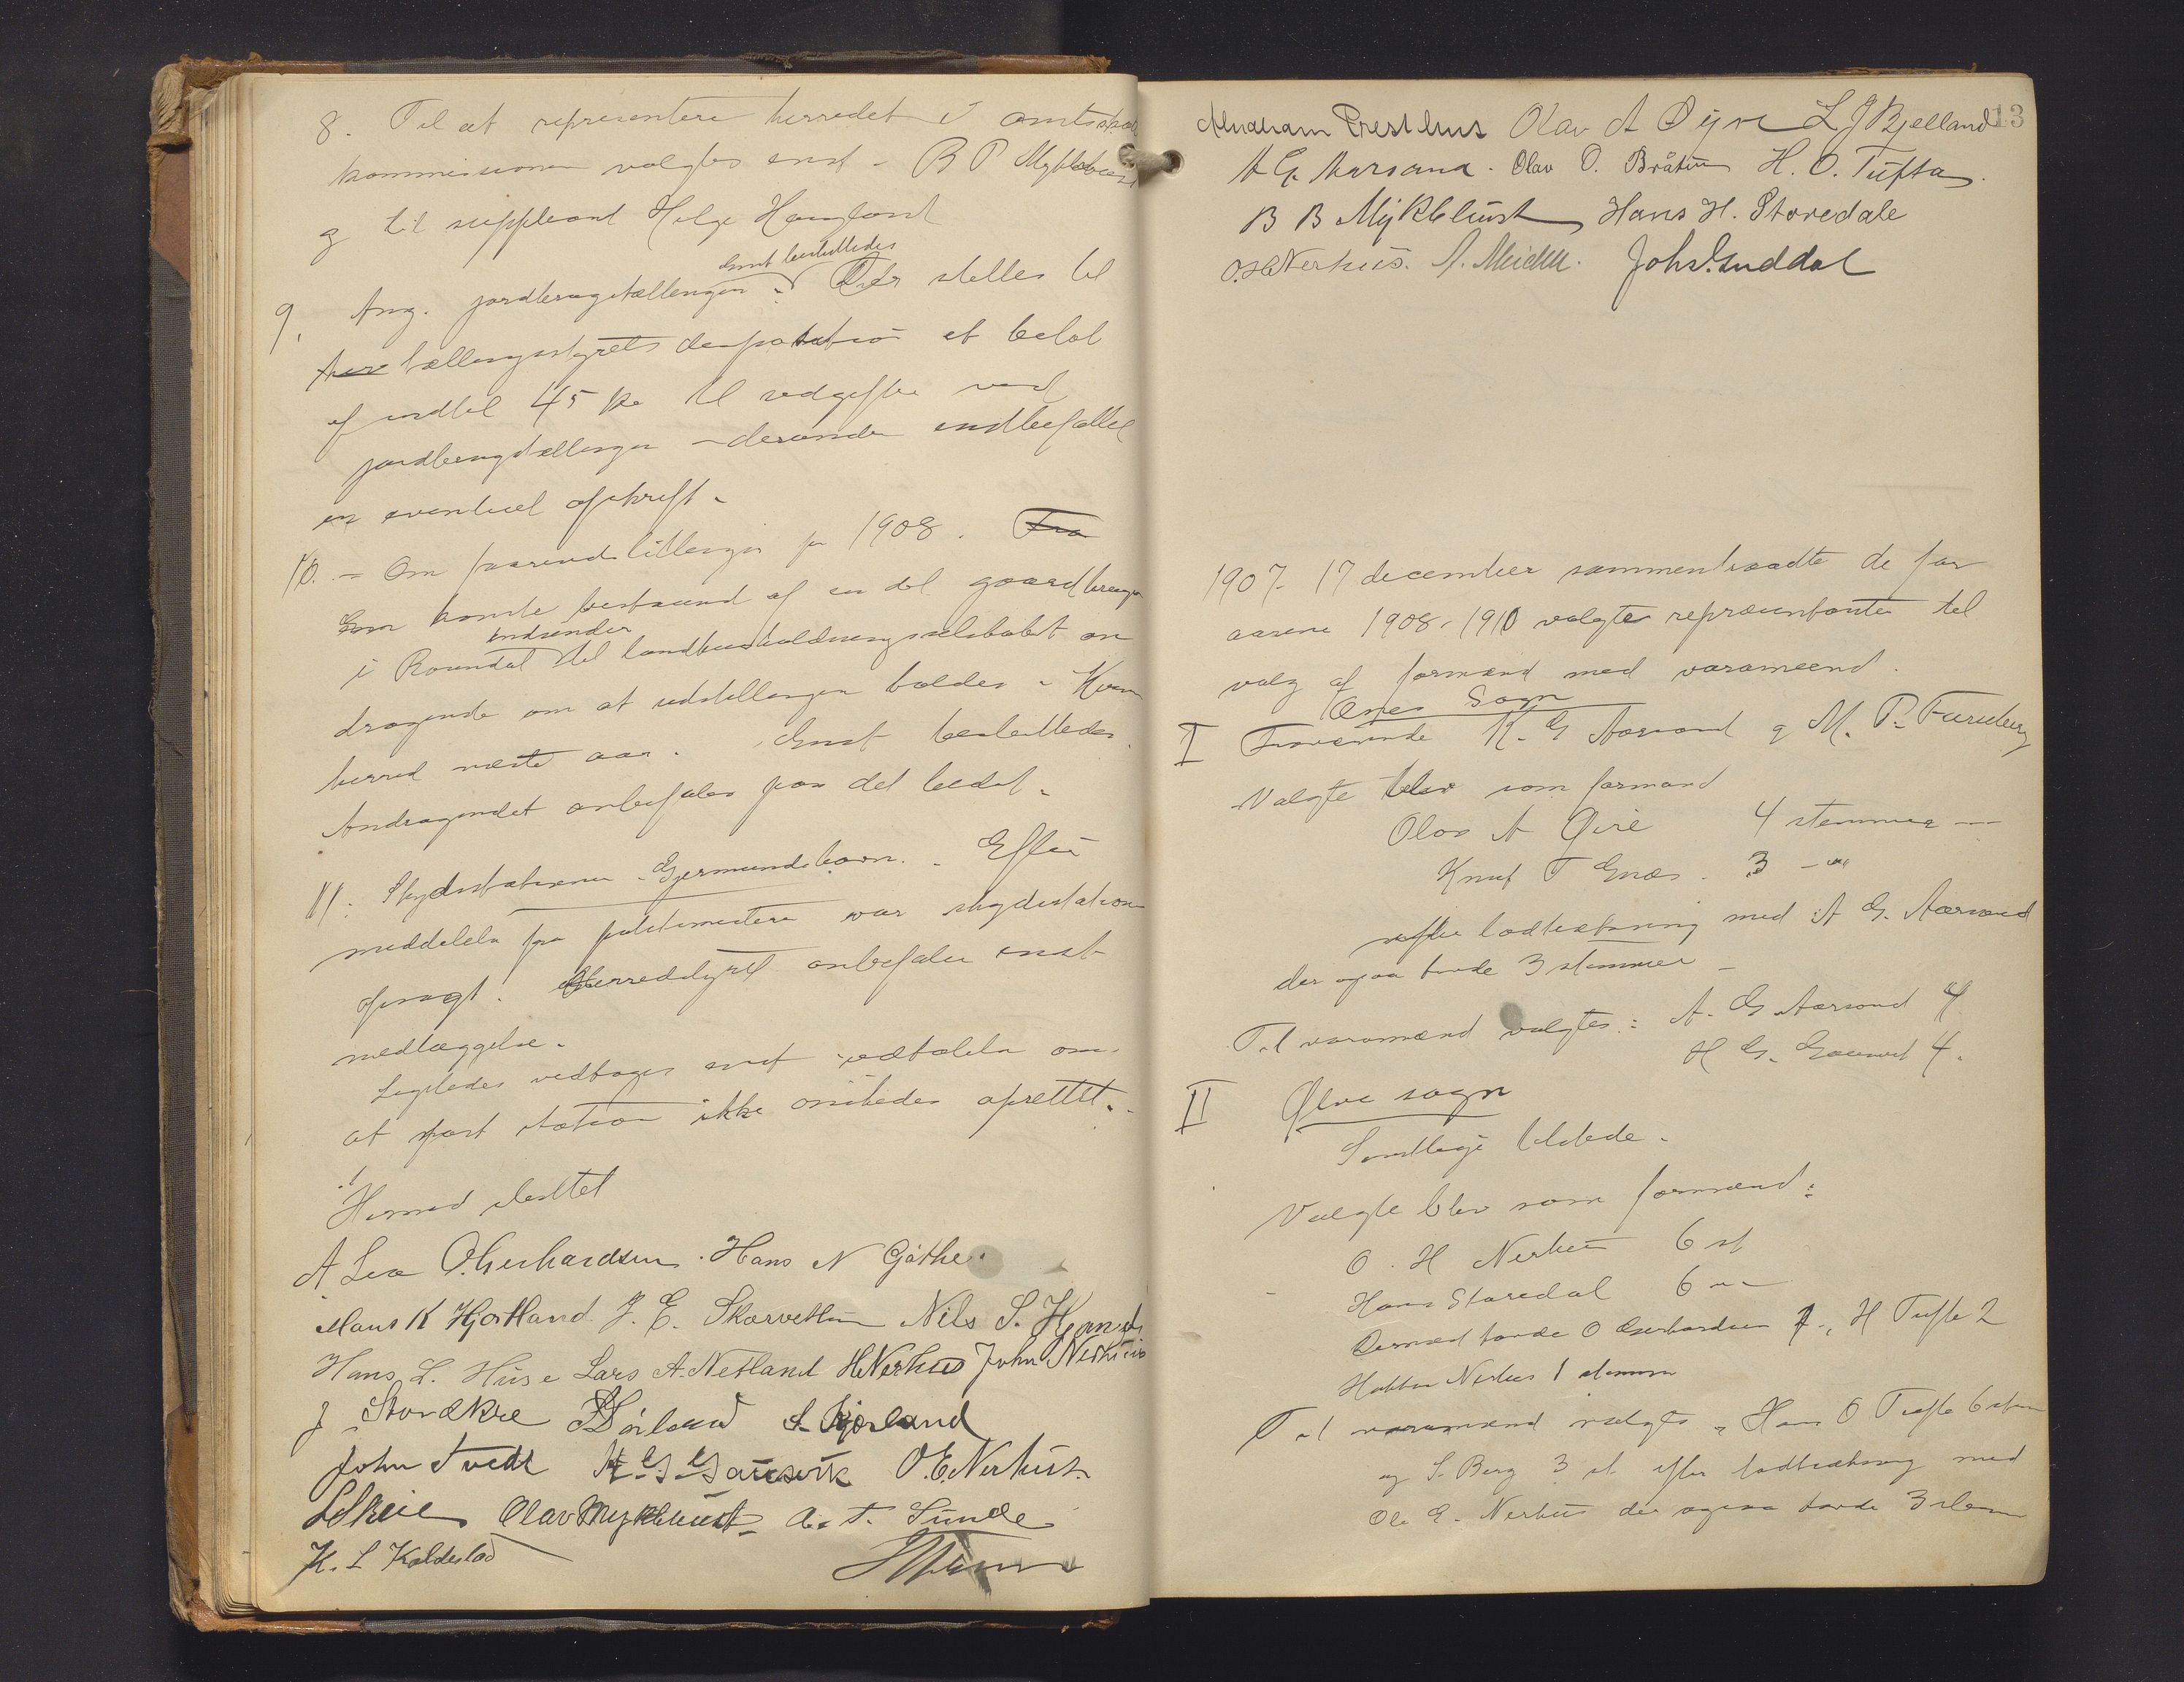 8. Til at repræsentere herredet i amtsskole
kommissionen valgtes enst. B P Myklebust
og til suppleant Helge Haugland
9. Ang. jordbrugstællingen. Enst besluttedes Der stilles til
tællingsstyrets disposition et beløb
af indtil 45 kr til udgifter ved
jordbrugstællingen derunder indbefattet
en eventuel afskrift.
10. Om faareudstillinger for 1908. Fra
i Rosendal indsender til landhusholdningsselskabet an
dragende om at udstillingen holdes i Kvin
herred næste aar. Enst besluttedes
Andragendet anbefales paa det bedste.
11. Skydsstationen Gjermundshavn. Efter
meddelelse fra politimesteren var skydsstationen
opsagt. Herredsstyret anbefaler enst
nedlæggelse.
Ligeledes vedtoges enst udtalelse om
at fast station ikke ønskedes oprettet.
Hermed sluttet
A Lea O. Gerhardsen Hans N Gjøthe
Hans K Hjortland J. E. Skorvethun Nils S.
Hans L. Huse Lars A. Netland H Nerhus John Nerhus
J Størdkre
John Tvedt H G Gausvik O. E. Nerhus
L Skeie Olav Myklebust A. T. Sunde
K. L Koldestad
13
Abraham Presthus Olav A Øyre L J Bjelland
A G Aarsand. Olav O. Bråten H. O. Tufta
B B Myklebust Hans H. Storedale
O. H. Nerhus. John Guddal
1907. 17 december sammentraadte de for
aarene 1908-1910 valgte repræsentanter til
valg af formænd med varamænd.
Ænes Sogn
I Fraværende K. G Aarsand og M. P. Furuberg
Valgte blev som formænd
Olav A Øire 4 stemmer
Knut T Enæs 3 -"-
efter lodtrækning med A G. Aarsand
der ogsaa havde 3 stemmer
Til varamænd valgtes: A. G Aarsand 4
H G. Gausvik 4.
II Ølve sogn
Samtlige tilstede.
Valgte blev som formænd:
O. H Nerhus 6 st
Hans Storedal 6 "-
Dernæst havde O Gerhardsen H Tufte 2
Nerhus 1 stemme
Til varamænd valgtes Hans O Tufte 6 stem
og S. Berg 3 st efter lodtrækning med
Ole E. Nerhus der ogsaa havde 3 stem